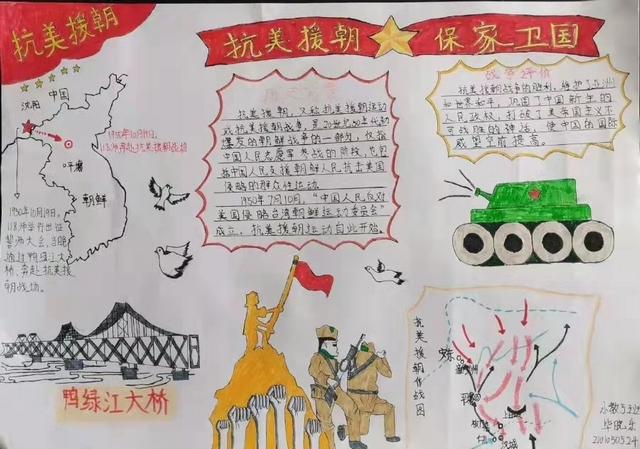 抗美援朝
抗美援朝
保家卫国
中国
沈阳
1950年10月19日,
118师奔赴抗美援朝战场
平壤
朝鲜
1950年10月19日,
118师举行出征
誓师大会,当晚
通过鸭绿江大
桥,奔赴抗美援
朝战场。
鸭绿江大桥
抗美援朝,又称抗美援朝运动
或抗美援朝战争,是20世纪50年代初
爆发的朝鲜战争的一部分,仅指
中国人民志愿军参战的阶段,也包
括中国人民支援朝鲜人民抗击美国
侵略的群众性运动。
1950年7月10日,“中国人民反对
美国侵略台湾朝鲜运动委员会”
成立,抗美援朝运动自此开始。
战争评价
抗美援朝战争的胜利,维护了亚洲
和世界和平,巩固了中国新生的
人民政权,打破了美帝国主义不
可战胜的神话,使中国的国际
威望空前提高。
抗美援朝作战图
安东
平壤
汉城
2101050524